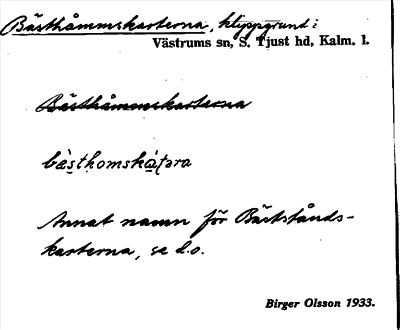 Bästhåmmskarterna, klyppgrund i
Västrums sn, S. Tjust hd, Kalm. l.
Bästhåmmskarterna
bȧsthomskat̩ɘra
Annat namn för Bästhånds-
karterna, se d.o.
Birger Olsson 1933.